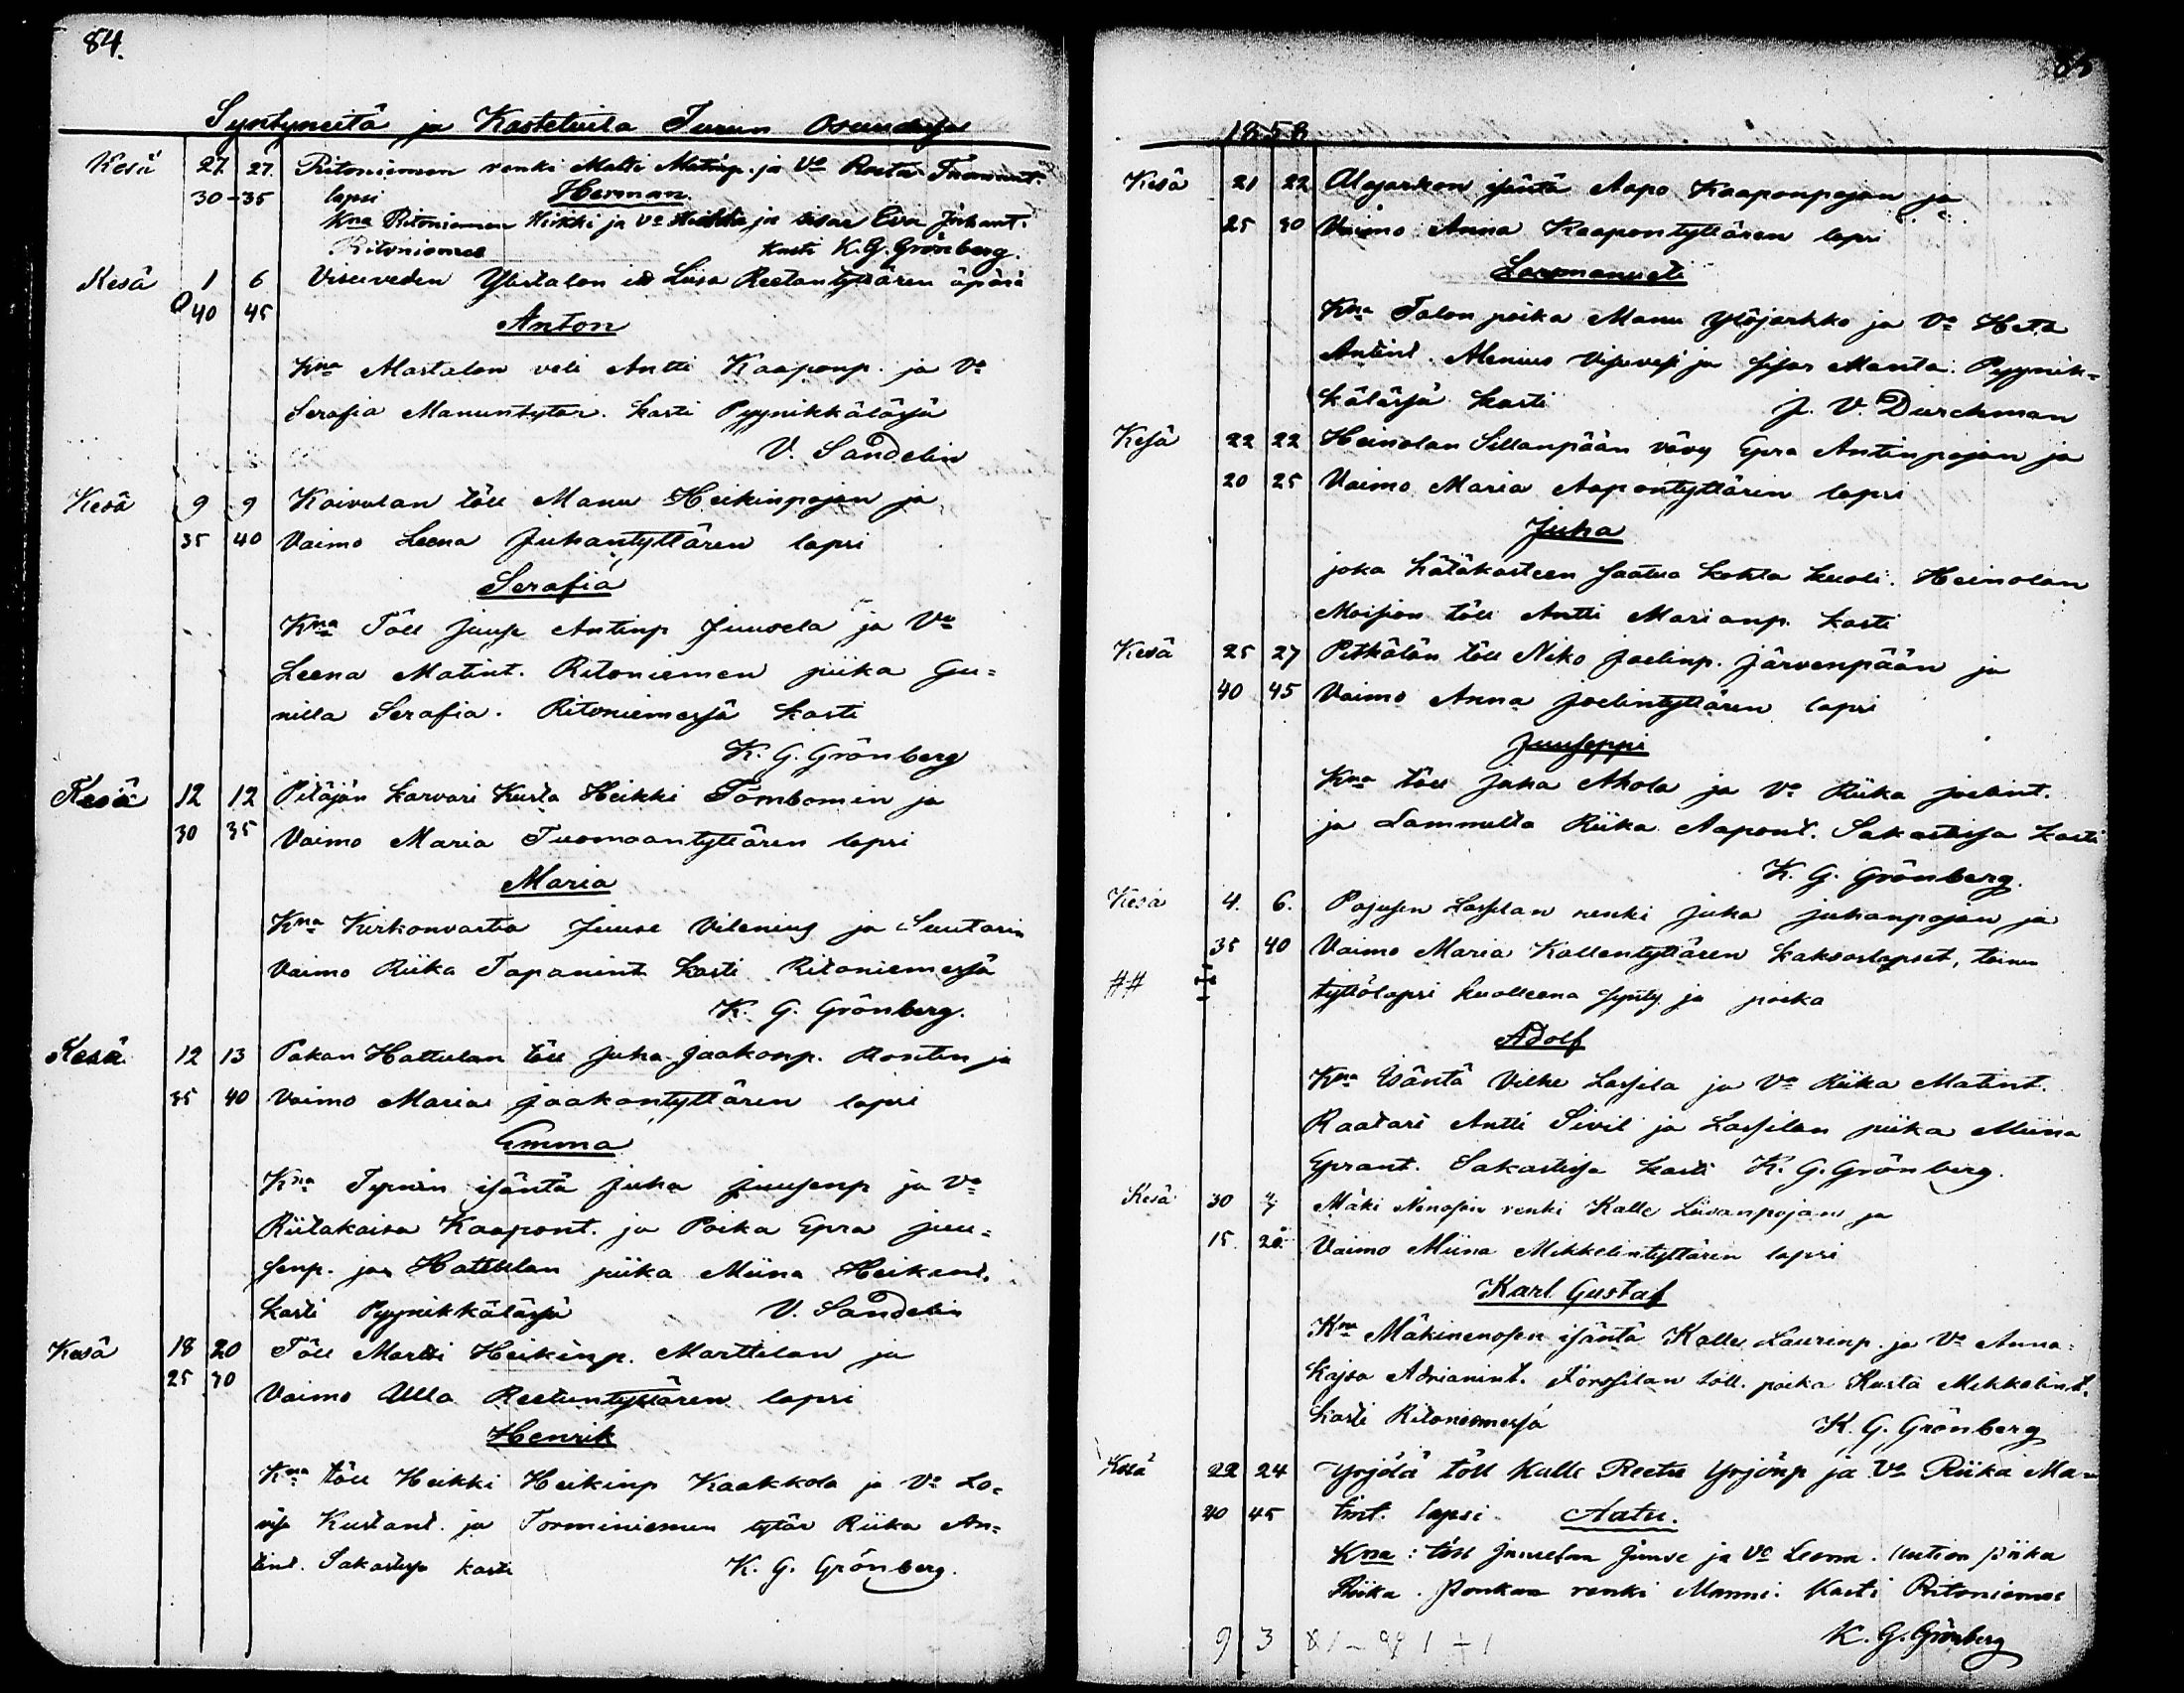 84.
Syntyneitä ja Kastetuita Turun
Kesä 27. 27. Ritoniemen renki Matti Matinp. ja Vo
30-35 lapsi Herman.
Kna Ritoniemen Heikki ja Vo ja sisar Eva Juhant.
Ritoniemes kasti K. G. Grönberg.
Kesä 1 6 Visuveden Ylistalon Liisa Reetantyttären äpärä
40 45
Anton
Kna Alastalon veli Antti Kaaponp. ja Vo
Serafia Manuntytär. kasti Pyynikkälässä
V. Sandelin
Kesä 9 9 Koivulan töll Manu Heikinpojan ja
35 40 Vaimo Leena Juhantyttären lapsi
Serafia
Kna Töll Juuse Antinp Juusela ja Vo
Leena Matint. Ritoniemen piika Gu=
nilla Serafia. Ritoniemessä kasti
K. G. Grönberg
Kesä 12 12 Pitäjän karvari Kusta Heikki Tömbomin ja
30 35 Vaimo Maria Tuomaantyttären lapsi
Maria
Kna Kirkonvartia Juuse Vilenius ja Suutarin
Vaimo Riika Tapanint kasti Ritoniemessä
K. G. Grönberg.
Kesä 12 13 Pakan Hattulan töll Juha Jaakonp. ja
35 40 Vaimo Maria Jaakontyttären lapsi
Emma
Kna isäntä Juha Juusenp ja Vo
Riitakaisa Kaapont. ja Poika Epra Juu=
senp. ja Hattulan piika Miina Heikint.
kasti Pyynikkälässä V. Sandelin
Kesä 18 20 Töll Martti Heikinp. Marttilan ja
25 30 Vaimo Ulla Reetuntyttären lapsi
Henrik
Kna töll Heikki Heikinp Kaakkola ja Vo Lo=
visa Kustant. ja Torminiemen tytär Riika An=
tint. Sakastissa kasti K. G. Grönberg.
85
1858
Kesä 21 22 Alajarkon isäntä Aapo Kaaponpojan ja
25 30 Vaimo Anna Kaapontyttären lapsi
Kna Talon poika Manu Ylöjarkko ja Vo Heta
Antint. Alenius Visuvesi ja sisar Manta. Pyynik=
kälässä kasti J. V. Durchman
Kesä 22 22 Heinolan Sillanpään vävy Epra Antinpojan ja
20 25 Vaimo Maria Aapontyttären lapsi
Juha
joka hätäkasteen saatua kohta kuoli. Heinolan
Moision töll Antti Marianp. kasti
Kesä 25 27 Pitkälän töll Niko Joelinp. Järvenpään ja
40 45 Vaimo Anna Joelintyttären lapsi
Juuseppi
Kna töll Juha Ahola ja Vo Riika Joelint.
ja Lammilta Riika Aapont. Sakastissa kasti
K. G. Grönberg.
Kesä 4. 6. Pajusen Lassilan renki Juha Juhanpojan ja
35 40 Vaimo Maria Kallentyttären kaksoslapset, toinen
## tyttölapsi kuolleena synty ja poika
Adolf
Kna Isäntä Vilhe Lassila ja Vo Riika Matint.
Raatari Antti Sivil ja Lassilan piika Miina
Eprant. Sakastissa kasti K. G. Grönberg.
Kesä 30 4/7 Mäki renki Kalle Liisanpojan ja
15. 20. Vaimo Miina Mikkelintyttären lapsi
Karl Gustaf
Kna isäntä Kalle Laurinp. ja Vo Anna=
kajsa Adrianint. töll. poika Kusta Mikkelint.
kasti Ritoniemessä K. G. Grönberg
Kesä 22 24 Yrjölä töll Kalle Reetu Yrjönp ja Vo Riika Ma=
40 45 tint. lapsi Aatu.
Kna: töll Juuselan Juuse ja Vo Leena. piika
Riika. renki Manni. Kasti Ritoniemes
K. G. Grönberg
9 3